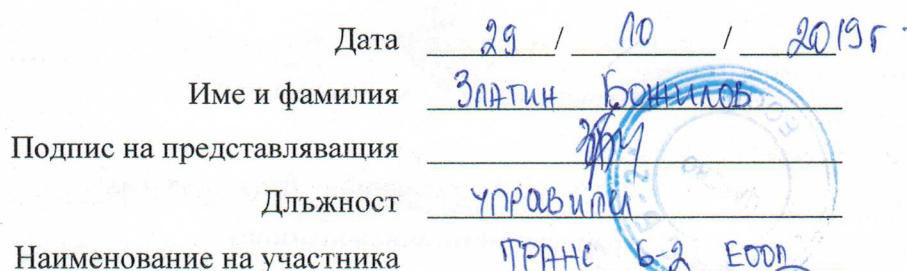 Дата 29 / 10 / 2019г.
Име и фамилия Златин Божилов
Подпис на представляващия
Длъжност управител
Наименование на участника ТРАНС Б-2 ЕООД